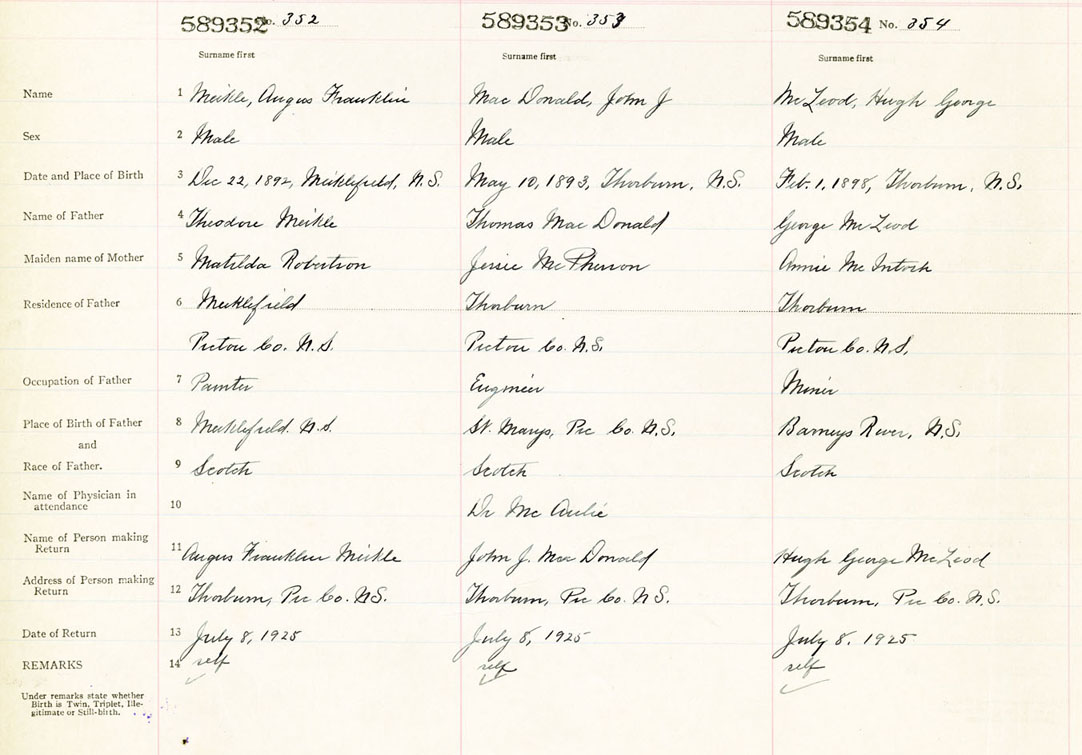 589352 No. 352 589353 No. 353 589354 No. 354
Surname first Surname first Surname first
Name 1 Meikle, Angus Franklin Mac Donald, John J McLeod, Hugh George
Sex 2 Male Male Male
Date and Place of Birth 3 Dec 22, 1892, Meiklefield, N.S. May 10, 1893, Thorburn, N.S. Feb. 1, 1898, Thorburn, N.S.
Name of Father 4 Theodore Meikle Thomas Mac Donald George McLeod
Maiden name of Mother 5 Matilda Robertson Jessie McPherson Annie McIntosh
Residence of Father 6 Meiklefield Thorburn Thorburn
Pictou Co. N.S. Pictou Co. N.S. Pictou Co. N.S.
Occupation of Father 7 Painter Engineer Miner
Place of Birth of Father 8 Meiklefield. N.S. St. Marys, Pic Co. N.S. Barneys River, N.S.
and
Race of Father. 9 Scotch Scotch Scotch
Name of Physician in
attendance 10 Dr Mc
Name of Person making
Return 11 Angus Franklin Meikle John J. Mac Donald Hugh George McLeod
Address of Person making
Return 12 Thorburn, Pic Co. N.S. Thorburn, Pic Co. N.S. Thorburn, Pic Co. N.S.
Date of Return 13 July 8, 1925 July 8, 1925 July 8, 1925
REMARKS 14 self self self
Under remarks state whether
Birth is Twin, Triplet, Ille-
gitimate or Still-birth.